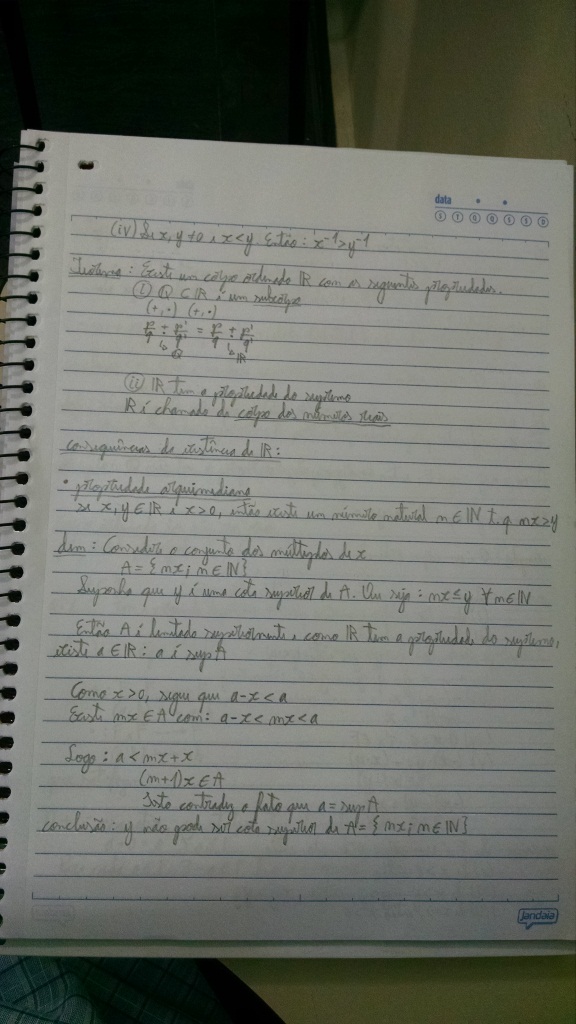 data
S T Q Q S S D
(iv) Se x, y ≠ 0 e x < y. Então: x⁻¹ > y⁻¹
Teorema: Existe um corpo ordenado ℝ com as seguintes propriedades.
(i) Q ⊂ ℝ é um subcorpo
(+,·) (+,·)
p/q ± p'/q' = p/q ± p'/q'
↳ Q ↳ ℝ
(ii) ℝ tem a propriedade do supremo
ℝ é chamado de corpo dos números reais
consequências da existência de ℝ:
• propriedade arquimediana
se x, y ∈ ℝ e x > 0, então existe um número natural n ∈ ℕ t.q nx > y
dem: Considere o conjunto dos múltiplos de x
A = {nx; n ∈ ℕ}
Suponha que y é uma cota superior de A. Ou seja: nx ≤ y ∀ n ∈ ℕ
Então A é limitado superiormente e como ℝ tem a propriedade do supremo,
existe a ∈ ℝ: a é sup A
Como x > 0, segue que a - x < a
Existe mx ∈ A com: a - x < mx < a
Logo: a < mx + x
(m+1)x ∈ A
Isto contradiz o fato que a = sup A
conclusão: y não pode ser cota superior de A = {nx; n ∈ ℕ}
Jandaia